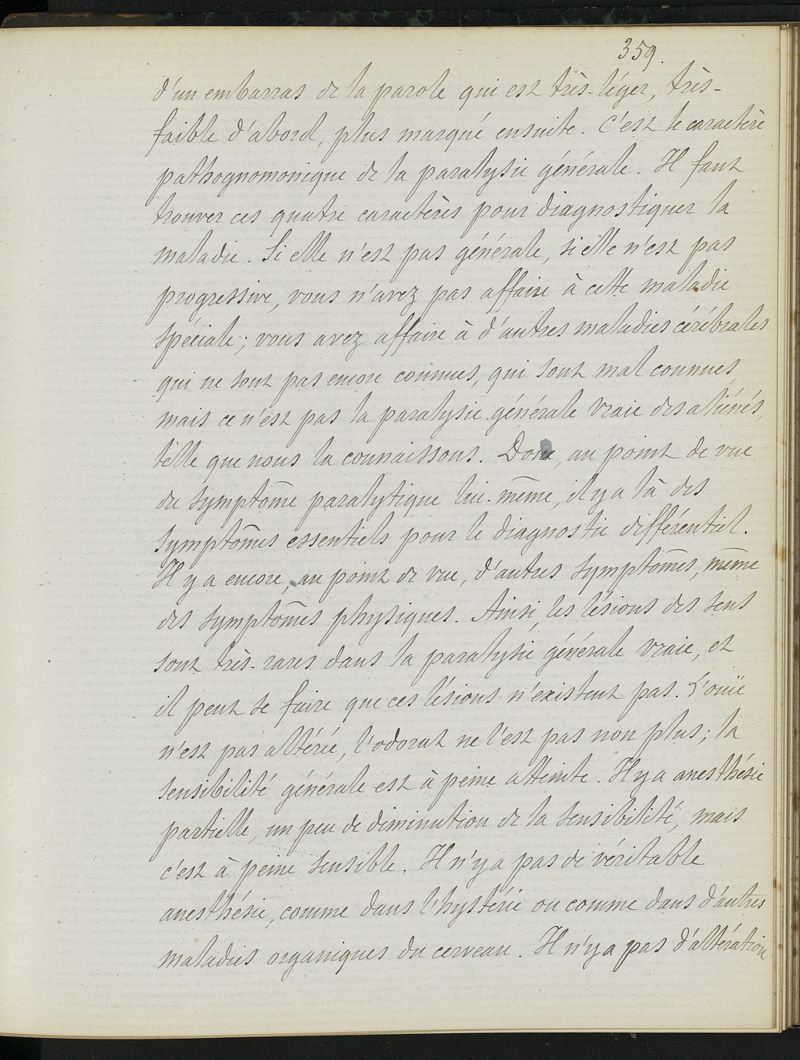 359.
d'un embarras de la parole qui est très-léger, très-
faible d'abord, plus marqué ensuite. C'est le caractère
pathognomonique de la paralysie générale. Il faut
trouver ces quatre caractères pour diagnostiquer la
maladie. Si elle n'est pas générale, si elle n'est pas
progressive, vous n'avez pas affaire à cette maladie
spéciale; vous avez affaire à d'autres maladies cérébrales
qui ne sont pas encore connues, qui sont mal connues,
mais ce n'est pas la paralysie générale vraie des aliénés,
telle que nous la connaissons. Donc, au point de vue
du symptôme paralytique lui-même, il y a là des
symptômes essentiels pour le diagnostic différentiel.
Il y a encore, au point de vue, d'autres symptômes, même
des symptômes physiques. Ainsi, les lésions des sens
sont très-rares dans la paralysie générale vraie, et
il peut se faire que ces lésions n'existent pas. L'ouïe
n'est pas altérée, l'odorat ne l'est pas non plus; la
sensibilité générale est à peine atteinte. Il y a anesthésie
partielle, un peu de diminution de la sensibilité, mais
c'est à peine sensible. Il n'y a pas de véritable
anesthésie, comme dans l'hystérie ou comme dans d'autres
maladies organiques du cerveau. Il n'y a pas d'altération